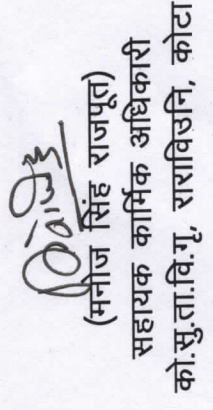 (मनोज सिंह राजपूत)
सहायक कार्मिक अधिकारी
को.सु.ता.वि.गृ, राराविउनि, कोटा